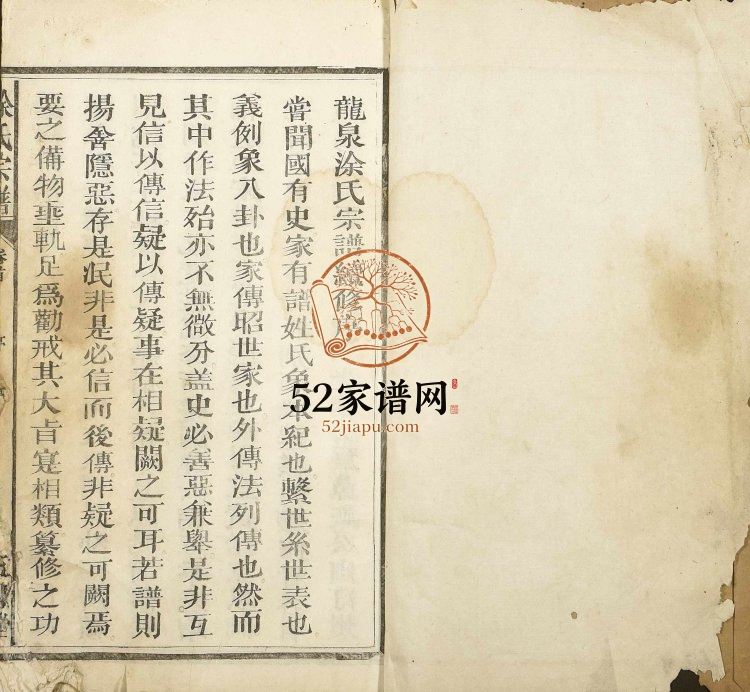 龍泉涂氏宗譜續修序
甞聞國有史家有譜姓氏象本紀也繫世系世表也
義例象八卦也家傳昭世家也外傳法列傳也然而
其中作法殆亦不無微分盖史必善惡兼舉是非互
見信以傳信疑以傳疑事在相疑闕之可耳若譜則
揚善隱惡存是泯非是必信而後傳非疑之可闕焉
要之備物垂軌足爲勸戒其大旨寔相類纂修之功
涂氏宗譜
卷首
序
52家谱网
52jiapu.com